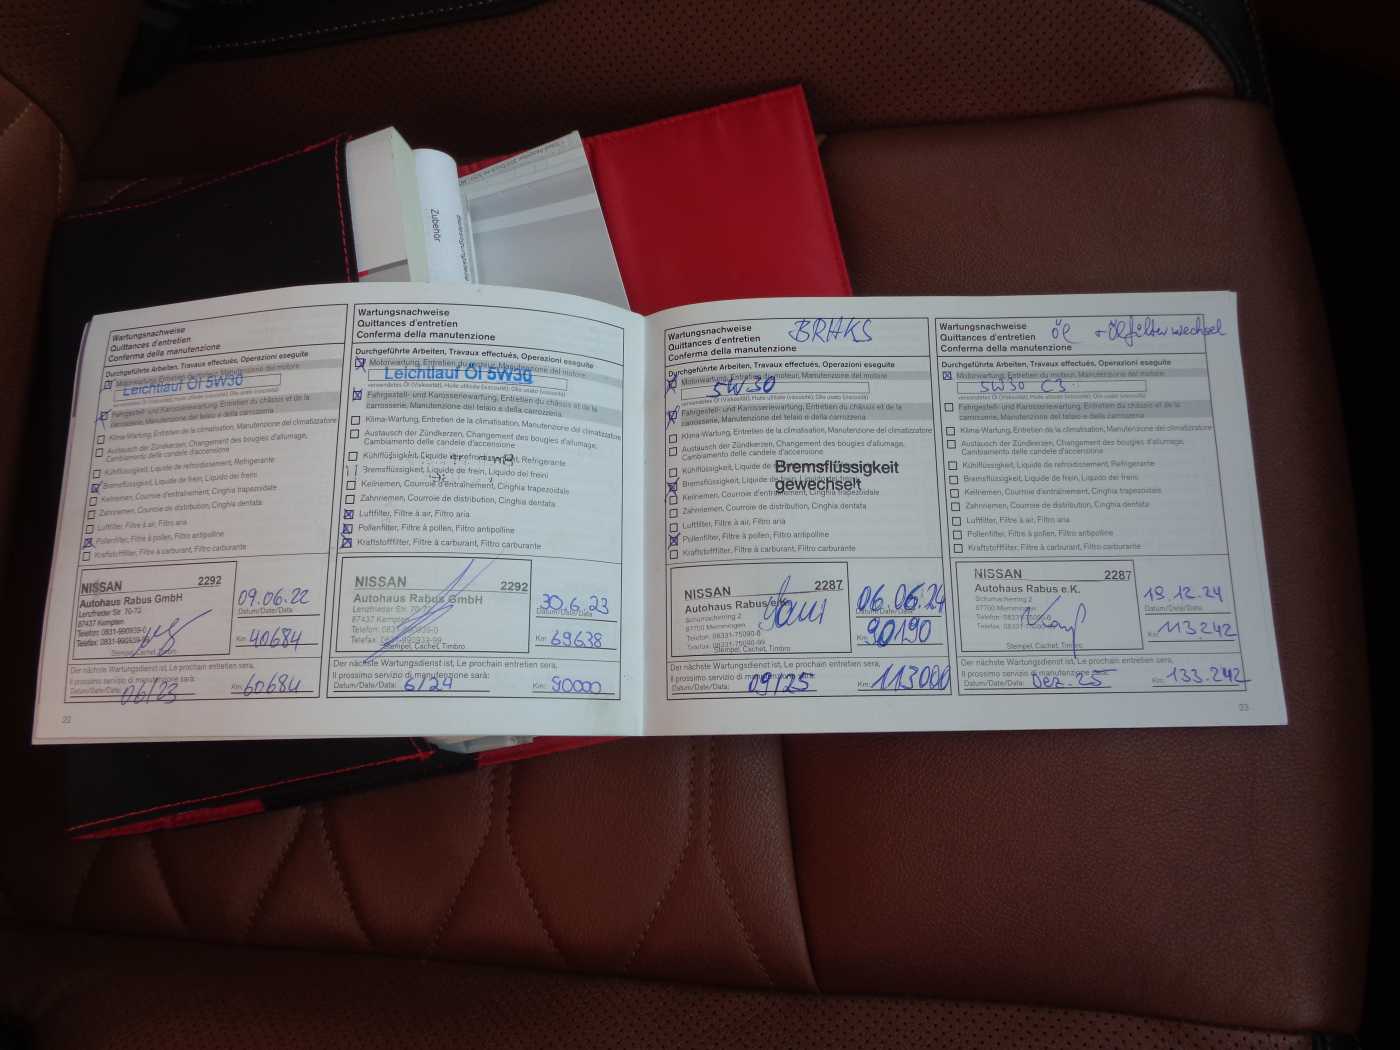 Zubehör
Wartungsnachweise
Quittances d'entretien
Conferma della manutenzione
Durchgeführte Arbeiten, Travaux effectués, Operazioni eseguite
Motorwartung, Entretien du moteur, Manutenzione del motore
Leichtlauf Öl 5W30
Fahrgestell- und Karosseriewartung, Entretien du châssis et de la
carrosserie, Manutenzione del telaio e della carrozzeria
Klima-Wartung, Entretien de la climatisation, Manutenzione del climatizzatore
Austausch der Zündkerzen, Changement des bougies d'allumage,
Cambiamento delle candele d'accensione
Kühlflüssigkeit, Liquide de refroidissement, Refrigerante
Bremsflüssigkeit, Liquide de frein, Liquido dei freini
Keilriemen, Courroie d'entraînement, Cinghia trapezoidale
Zahnriemen, Courroie de distribution, Cinghia dentata
Luftfilter, Filtre à air, Filtro aria
Pollenfilter, Filtre à pollen, Filtro antipolline
Kraftstofffilter, Filtre à carburant, Filtro carburante
NISSAN 2292
Autohaus Rabus GmbH
Lenzfrieder Str. 70-72
87437 Kempten
Telefon: 0831-990939-0
Telefax: 0831-990939-99
Stempel, Cachet, Timbro
09.06.22
Datum/Date/Data
Km: 40684
Der nächste Wartungsdienst ist, Le prochain entretien sera,
Il prossimo servizio di manutenzione sarà:
Datum/Date/Data: 06/23 Km: 60684
22
Wartungsnachweise
Quittances d'entretien
Conferma della manutenzione
Durchgeführte Arbeiten, Travaux effectués, Operazioni eseguite
Motorwartung, Entretien du moteur, Manutenzione del motore
Leichtlauf Öl 5W30
verwendetes Öl (Viskosität), Huile utilisée (viscosité), Olio usato (viscosità)
Fahrgestell- und Karosseriewartung, Entretien du châssis et de la
carrosserie, Manutenzione del telaio e della carrozzeria
Klima-Wartung, Entretien de la climatisation, Manutenzione del climatizzatore
Austausch der Zündkerzen, Changement des bougies d'allumage,
Cambiamento delle candele d'accensione
Kühlflüssigkeit, Liquide de refroidissement, Refrigerante
Bremsflüssigkeit, Liquide de frein, Liquido dei freini
Keilriemen, Courroie d'entraînement, Cinghia trapezoidale
Zahnriemen, Courroie de distribution, Cinghia dentata
Luftfilter, Filtre à air, Filtro aria
Pollenfilter, Filtre à pollen, Filtro antipolline
Kraftstofffilter, Filtre à carburant, Filtro carburante
NISSAN 2292
Autohaus Rabus GmbH
Lenzfrieder Str. 70-72
87437 Kempten
Telefon: 0831-990939-0
Telefax: 0831-990939-99
Stempel, Cachet, Timbro
30.6.23
Datum/Date/Data
Km: 69638
Der nächste Wartungsdienst ist, Le prochain entretien sera,
Il prossimo servizio di manutenzione sarà:
Datum/Date/Data: 6/24 Km: 90000
Wartungsnachweise
Quittances d'entretien
Conferma della manutenzione
Durchgeführte Arbeiten, Travaux effectués, Operazioni eseguite
Motorwartung, Entretien du moteur, Manutenzione del motore
5W30
verwendetes Öl (Viskosität), Huile utilisée (viscosité), Olio usato (viscosità)
Fahrgestell- und Karosseriewartung, Entretien du châssis et de la
carrosserie, Manutenzione del telaio e della carrozzeria
Klima-Wartung, Entretien de la climatisation, Manutenzione del climatizzatore
Austausch der Zündkerzen, Changement des bougies d'allumage,
Cambiamento delle candele d'accensione
Kühlflüssigkeit, Liquide de refroidissement, Refrigerante
Bremsflüssigkeit, Liquide de frein, Liquido dei freini
Bremsflüssigkeit
gewechselt
Keilriemen, Courroie d'entraînement, Cinghia trapezoidale
Zahnriemen, Courroie de distribution, Cinghia dentata
Luftfilter, Filtre à air, Filtro aria
Pollenfilter, Filtre à pollen, Filtro antipolline
Kraftstofffilter, Filtre à carburant, Filtro carburante
NISSAN 2287
Autohaus Rabus e.K.
Schumacherring 2
87700 Memmingen
Telefon: 08331-75090-0
Stempel, Cachet, Timbro
06.06.24
Datum/Date/Data
Km: 90190
Der nächste Wartungsdienst ist, Le prochain entretien sera,
Il prossimo servizio di manutenzione sarà:
Datum/Date/Data: 09/25 Km: 113000
Wartungsnachweise
Quittances d'entretien
Conferma della manutenzione
Öl + Ölfilter wechsel
Durchgeführte Arbeiten, Travaux effectués, Operazioni eseguite
Motorwartung, Entretien du moteur, Manutenzione del motore
5W30 C3
verwendetes Öl (Viskosität), Huile utilisée (viscosité), Olio usato (viscosità)
Fahrgestell- und Karosseriewartung, Entretien du châssis et de la
carrosserie, Manutenzione del telaio e della carrozzeria
Klima-Wartung, Entretien de la climatisation, Manutenzione del climatizzatore
Austausch der Zündkerzen, Changement des bougies d'allumage,
Cambiamento delle candele d'accensione
Kühlflüssigkeit, Liquide de refroidissement, Refrigerante
Bremsflüssigkeit, Liquide de frein, Liquido dei freini
Keilriemen, Courroie d'entraînement, Cinghia trapezoidale
Zahnriemen, Courroie de distribution, Cinghia dentata
Luftfilter, Filtre à air, Filtro aria
Pollenfilter, Filtre à pollen, Filtro antipolline
Kraftstofffilter, Filtre à carburant, Filtro carburante
NISSAN 2287
Autohaus Rabus e.K.
Schumacherring 2
87700 Memmingen
Stempel, Cachet, Timbro
19.12.24
Datum/Date/Data
Km: 113.242
Der nächste Wartungsdienst ist, Le prochain entretien sera,
Il prossimo servizio di manutenzione sarà:
Datum/Date/Data: Dez. 25 Km: 133.242
23